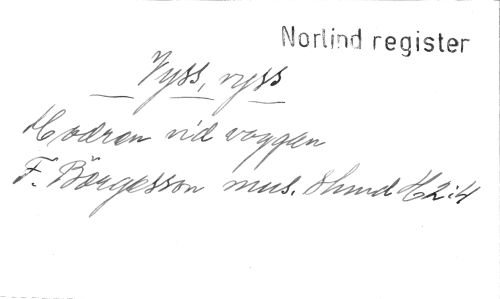 Norlind register
Vyss, vyss
Modren vid vaggan
F. Börgesson mus. Skind H2:4